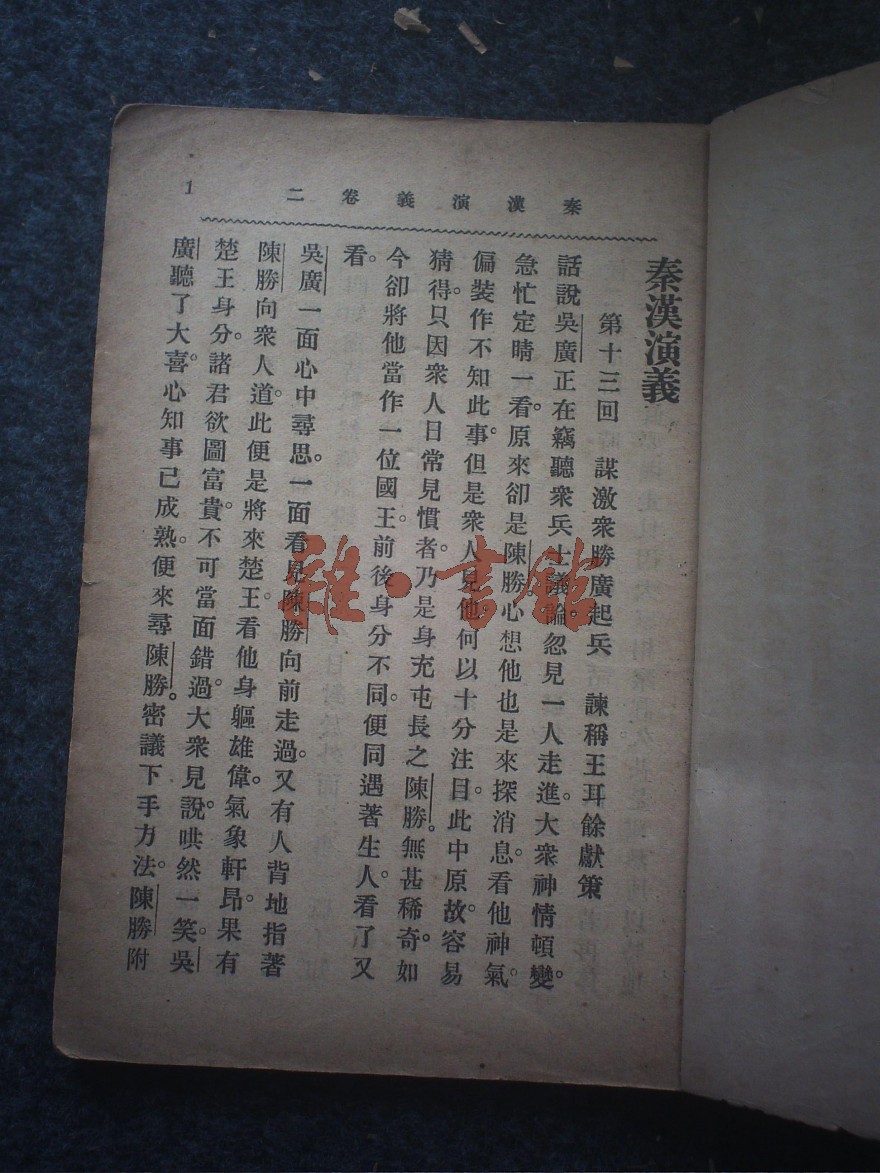 秦漢演義卷二
1
秦漢演義
第十三回　謀激衆勝廣起兵　諫稱王耳餘獻策
話說吳廣正在竊聽衆兵士議論忽見一人走進大衆神情頓變。
急忙定睛一看原來卻是陳勝心想他也是來探消息。看他神氣
偏裝作不知此事。但是衆人見他何以十分注目。此中原故。容易
猜得。只因衆人日常見慣者。乃是身充屯長之陳勝。無甚稀奇。如
今卻將他當作一位國王。前後身分不同。便同遇著生人。看了又
看。
吳廣一面心中尋思。一面看見陳勝向前走過。又有人背地指著
陳勝向衆人道。此便是將來楚王。看他身軀雄偉。氣象軒昂。果有
楚王身分。諸君欲圖富貴。不可當面錯過。大衆見說。哄然一笑。吳
廣聽了大喜。心知事已成熟。便來尋陳勝。密議下手方法。陳勝附
雜·書館